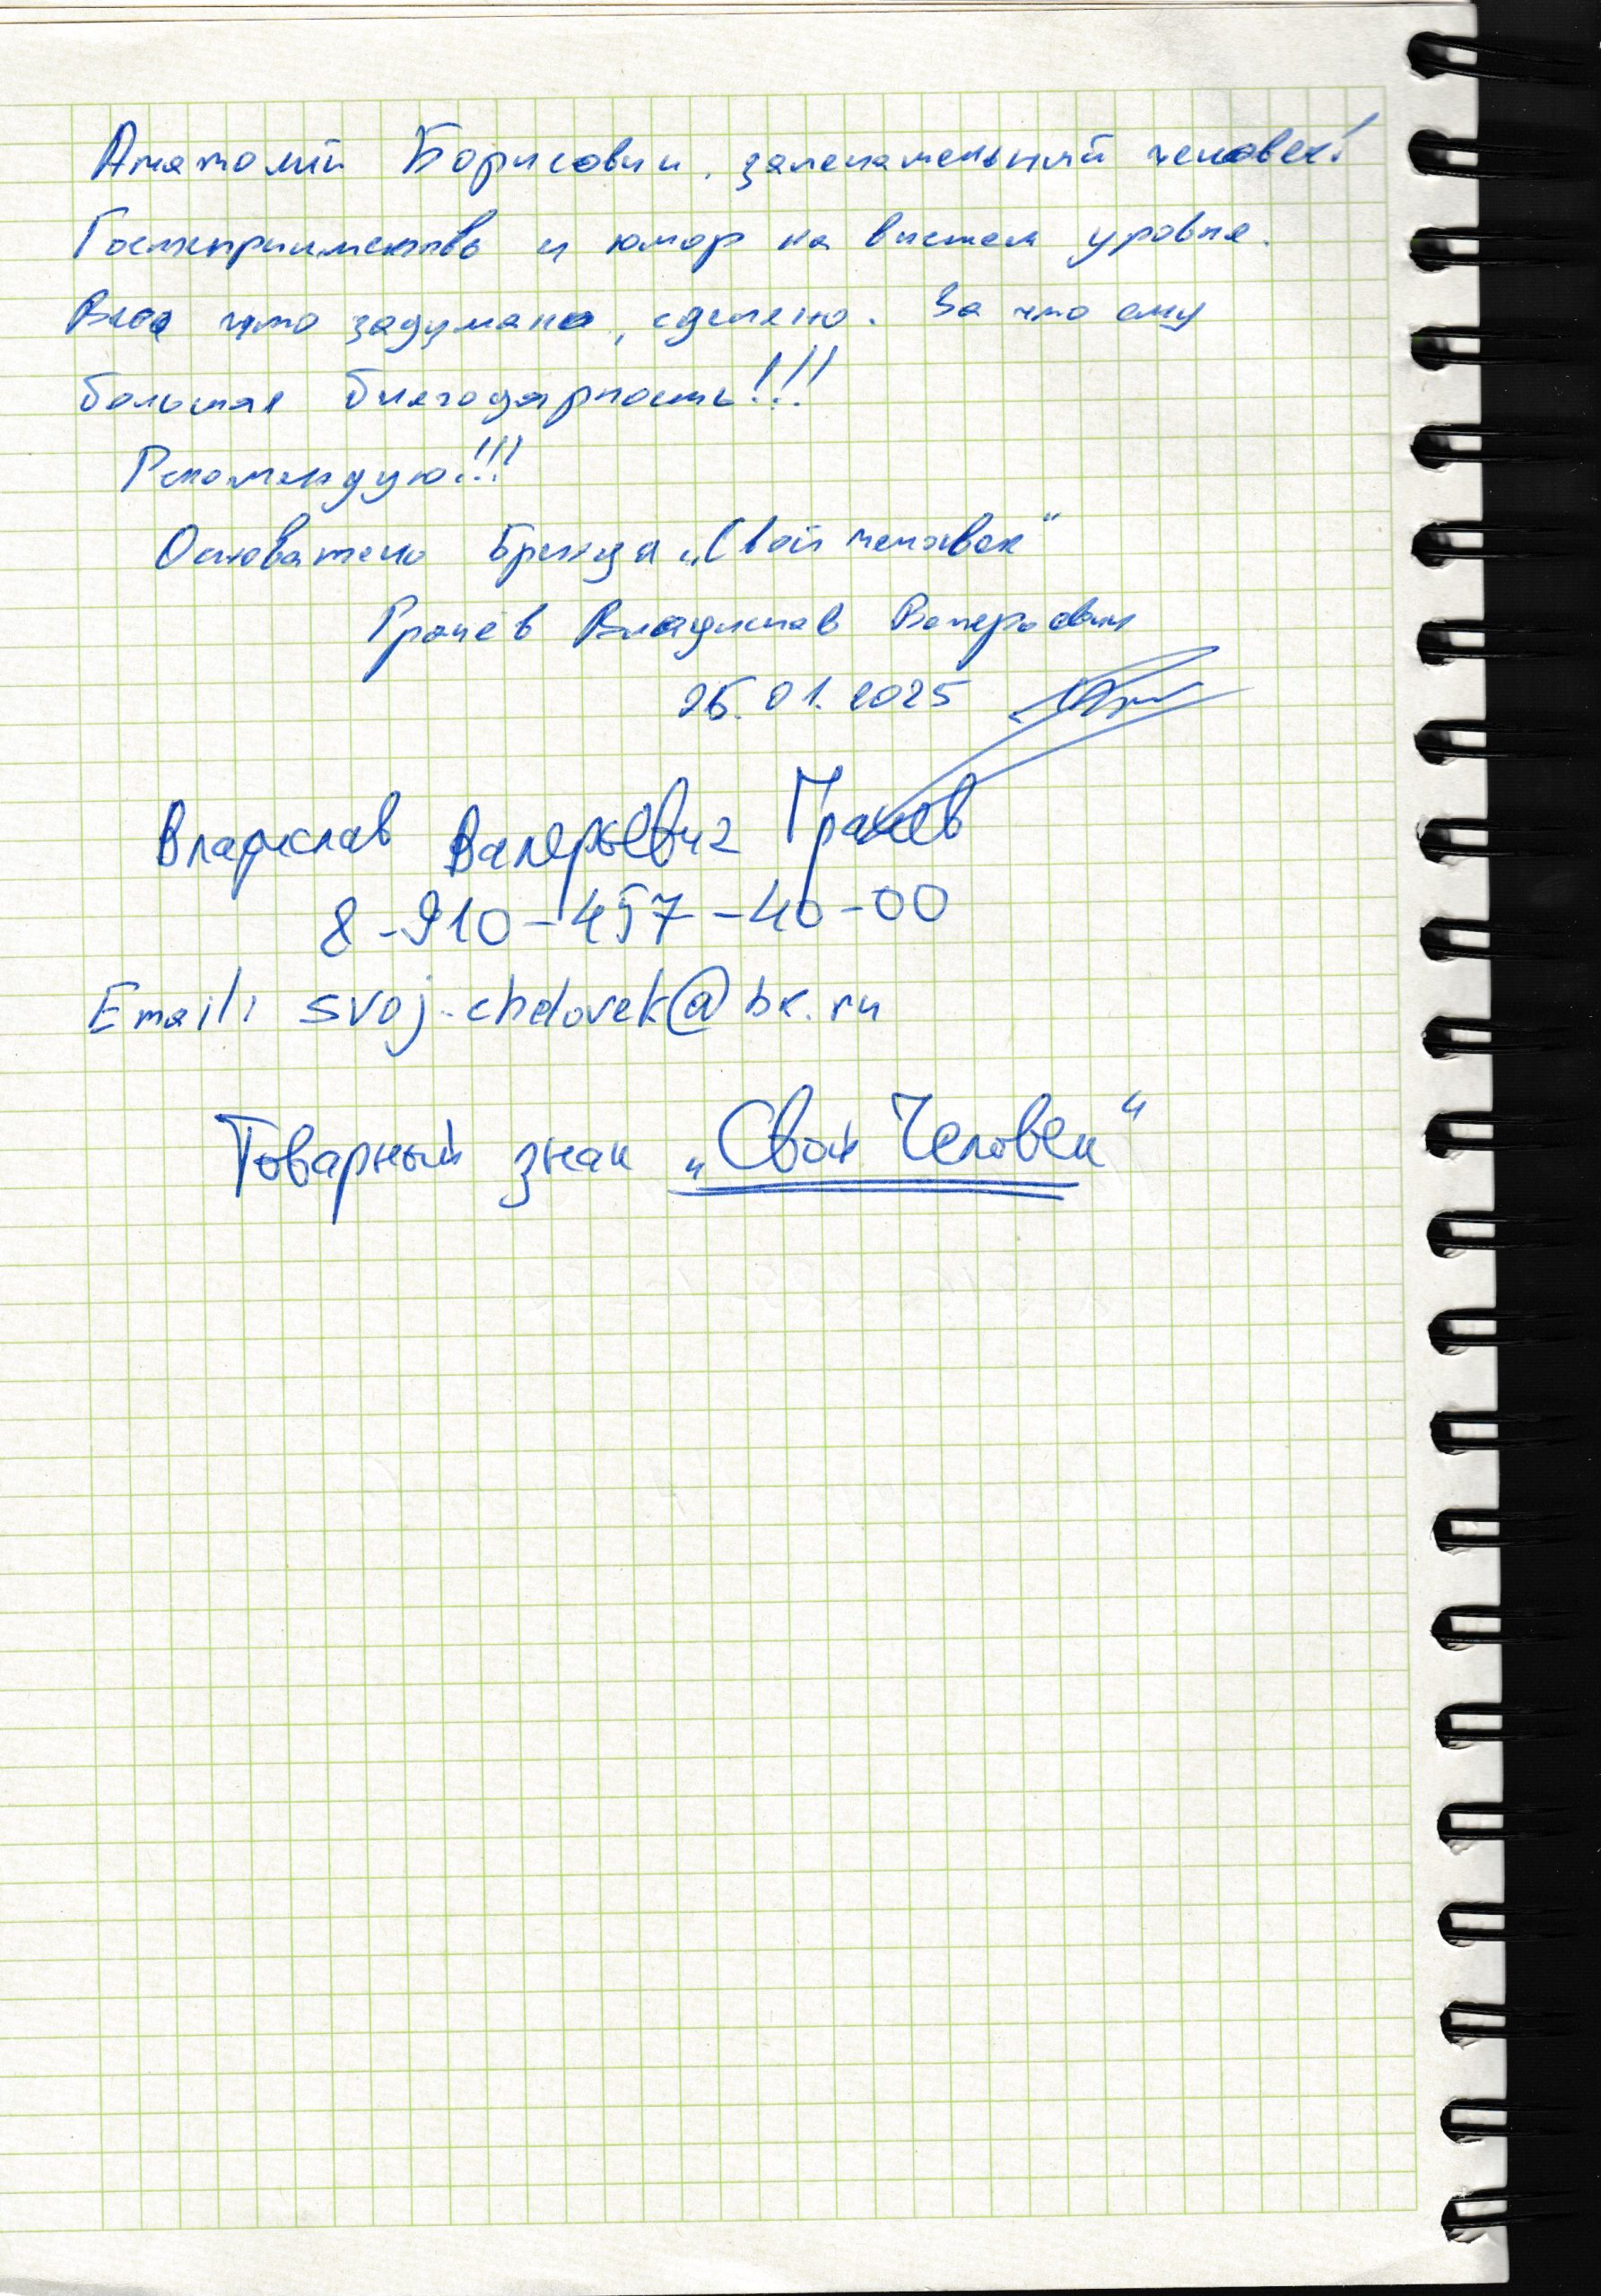 Анатолий Борисович, замечательный человек!
Гостеприимство и юмор на высшем уровне.
Все что задумано, сделано. За что ему
большая благодарность!!!
Рекомендую!!!
Основатель бренда „Свой человек“
Грачёв Владислав Валерьевич
25.01.2025
Владислав Валерьевич Грачев
8-910-457-40-00
Email: svoj-chelovek@bk.ru
Товарный знак „Свой Человек“